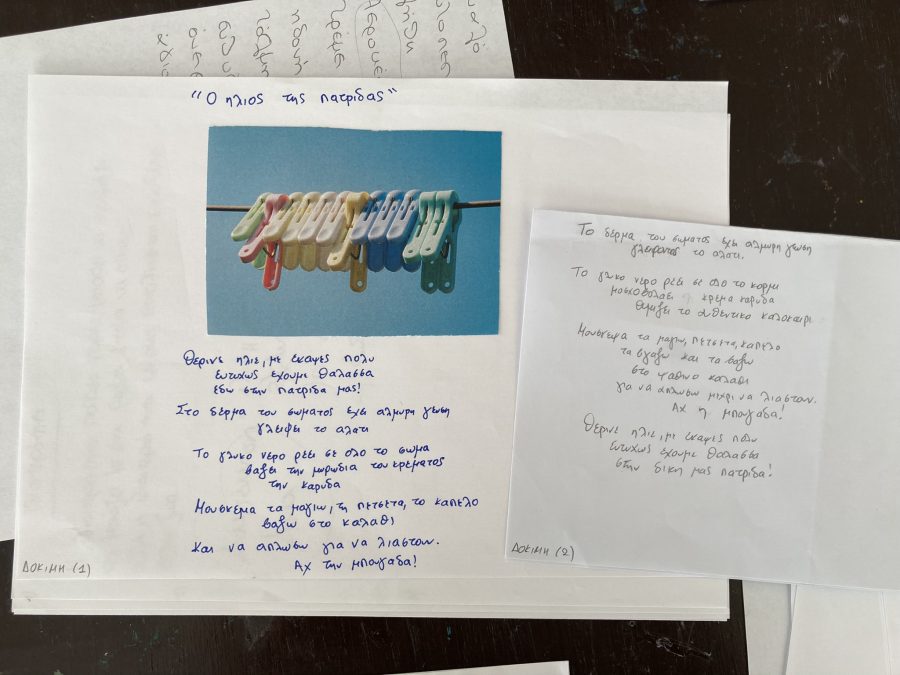 "Ο ηλιος της πατριδας"
Θερινε ηλιε, με εκαψες πολυ
ευτυχως εχουμε θαλασσα
εδω στην πατριδα μας!
Στο δερμα του σωματος εχει αλμυρη γευση
γλειφει το αλατι
Το γλυκο νερο ρεει σε ολο το σωμα
βαζει την μυρωδια του κρεματος
την καρυδα
Μουσκεμα τα μαγιω, τη πετσετα, το καπελο
βαζω στο καλαθι
και να απλωσω για να λιαστουν.
Αχ την μπουγαδα!
ΔΟΚΙΜΗ (1)
Το δερμα του σωματος εχει αλμυρη γευση
το αλατι.
Το γλυκο νερο ρεει σε ολο το κορμι
μοσχοβολαει κρεμα καρυδα
θυμιζει το αυθεντικο καλοκαιρι
Μουσκεμα τα μαγιω, πετσετα, καπελο
τα βγαζω και τα βαζω
στο ψαθινο καλαθι
για να απλωσω μεχρι να λιαστουν.
Αχ η μπουγαδα!
Θερινε ηλιε, με εκαψες πολυ
ευτυχως εχουμε θαλασσα
στην δικη μας πατριδα!
ΔΟΚΙΜΗ (2)